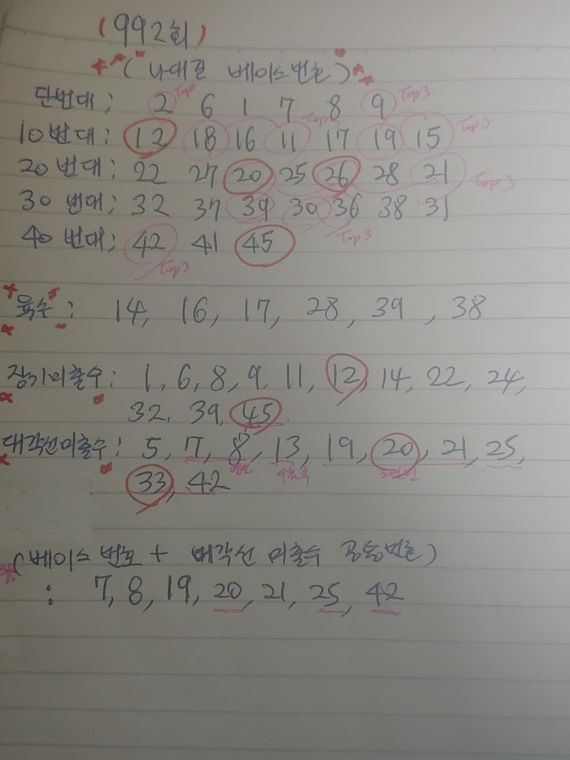 (992회)
(나대길 베이스번호)
단번대; 2 6 1 7 8 9 Top3
10번대: 12 18 16 11 17 19 15 Top3
20번대; 22 27 20 25 26 28 21 Top3
30번대; 32 37 39 30 36 38 31
40번대; 42 41 45 Top3
Top3
육수: 14, 16, 17, 28, 39, 38
장기미출수: 1, 6, 8, 9, 11, 12, 14, 22, 24,
32, 39, 45
대각선미출수: 5, 7, 8, 13, 19, 20, 21, 25,
33, 42
(베이스 번호 + 대각선 미출수 공통번호)
: 7, 8, 19, 20, 21, 25, 42